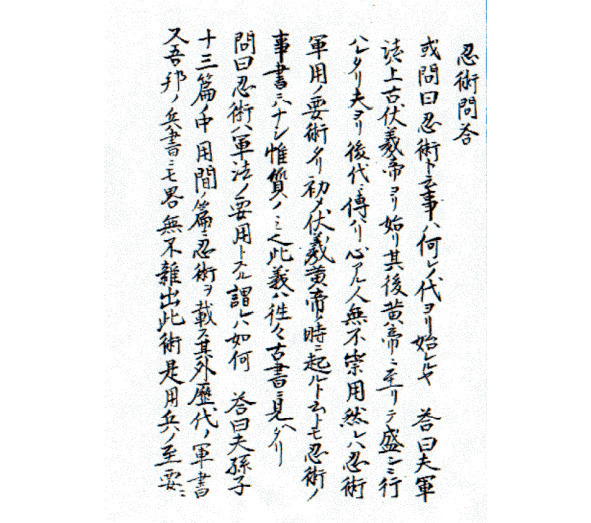 忍術問答
或問曰忍術ト云事ハ何レノ代ヨリ始レルヤ 答曰夫軍
法上古伏羲帝ヨリ始リ其後黄帝ニ至リテ盛ンニ行
ハレタリ夫ヨリ後代ニ傳ハリ心アル人無不崇用然レハ忍術ハ
軍用ノ要術タリ初メ伏羲黄帝ノ時ニ起ルト云トモ忍術ノ
事書ニハナシ惟質ノミ也此義ハ往々古書ニ見ヘタリ
問曰忍術ハ軍法ノ要用トスル謂レハ如何 答曰夫孫子
十三篇ノ中用間ノ篇ニ忍術ヲ載ス其外歴代ノ軍書
又吾邦ノ兵書ニモ畧無不雜出此術是用兵ノ至要ニ